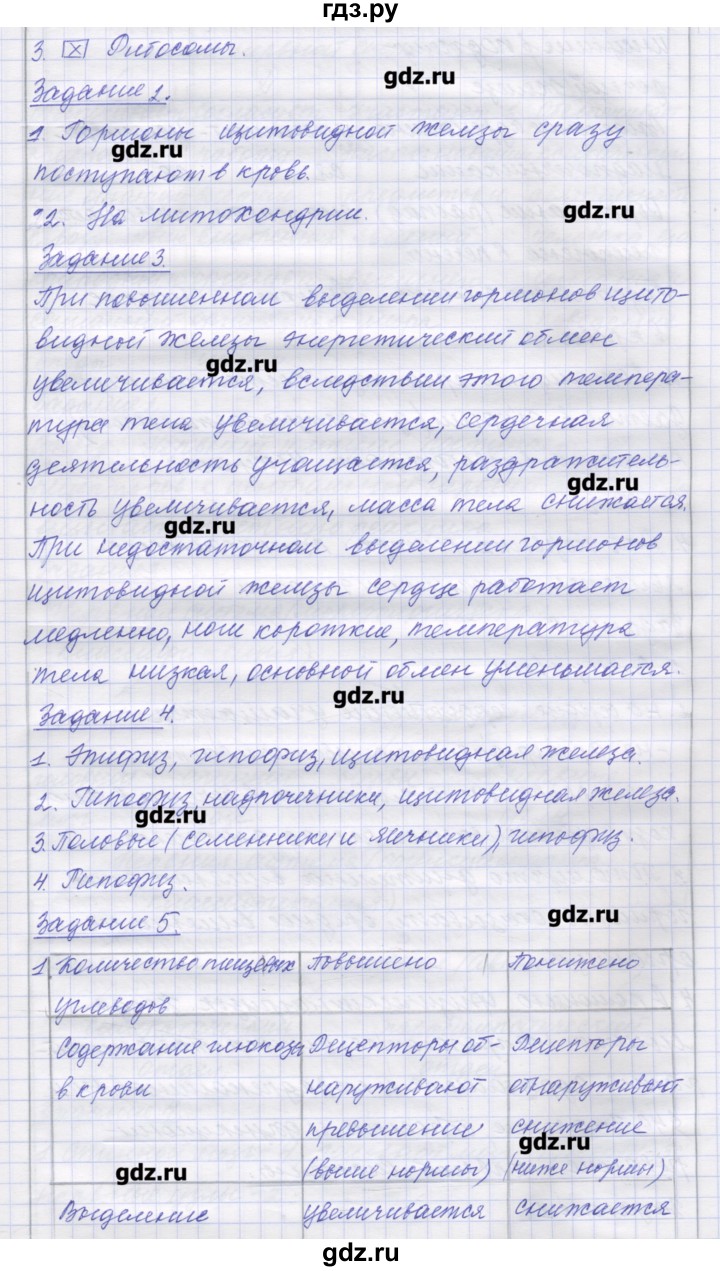 гдз.ру
3. ☒ Ритосомы.
gdz.ru
Задание 2.
1. Гормоны щитовидной железы сразу
gdz.ru
поступают в кровь.
2. На митохондрии.
gdz.ru
Задание 3.
При повышенном выделении гормонов щито-
видной железы энергетический обмен
gdz.ru
увеличивается, вследствии этого темпера-
тура тела увеличивается, сердечная
деятельность учащается, раздражитель-
gdz.ru
ность увеличивается, масса тела снижается.
gdz.ru
При недостаточном выделении гормонов
щитовидной железы сердце работает
медленно, ноги короткие, температура
тела низкая, основной обмен уменьшается.
gdz.ru
Задание 4.
1. Эпифиз, гипофиз, щитовидная железа.
2. Гипофиз, надпочечники, щитовидная железа.
gdz.ru
3. Половые (семенники и яичники), гипофиз.
4. Гипофиз.
gdz.ru
Задание 5.
1 Количество пищевых Повышено Понижено
углеводов
Содержание глюкозы Рецепторы об- Рецепторы
в крови наруживают обнаруживают
превышение снижение
gdz.ru
(выше нормы) (ниже нормы)
gdz.ru
Выделение увеличивается снижается
gdz.ru